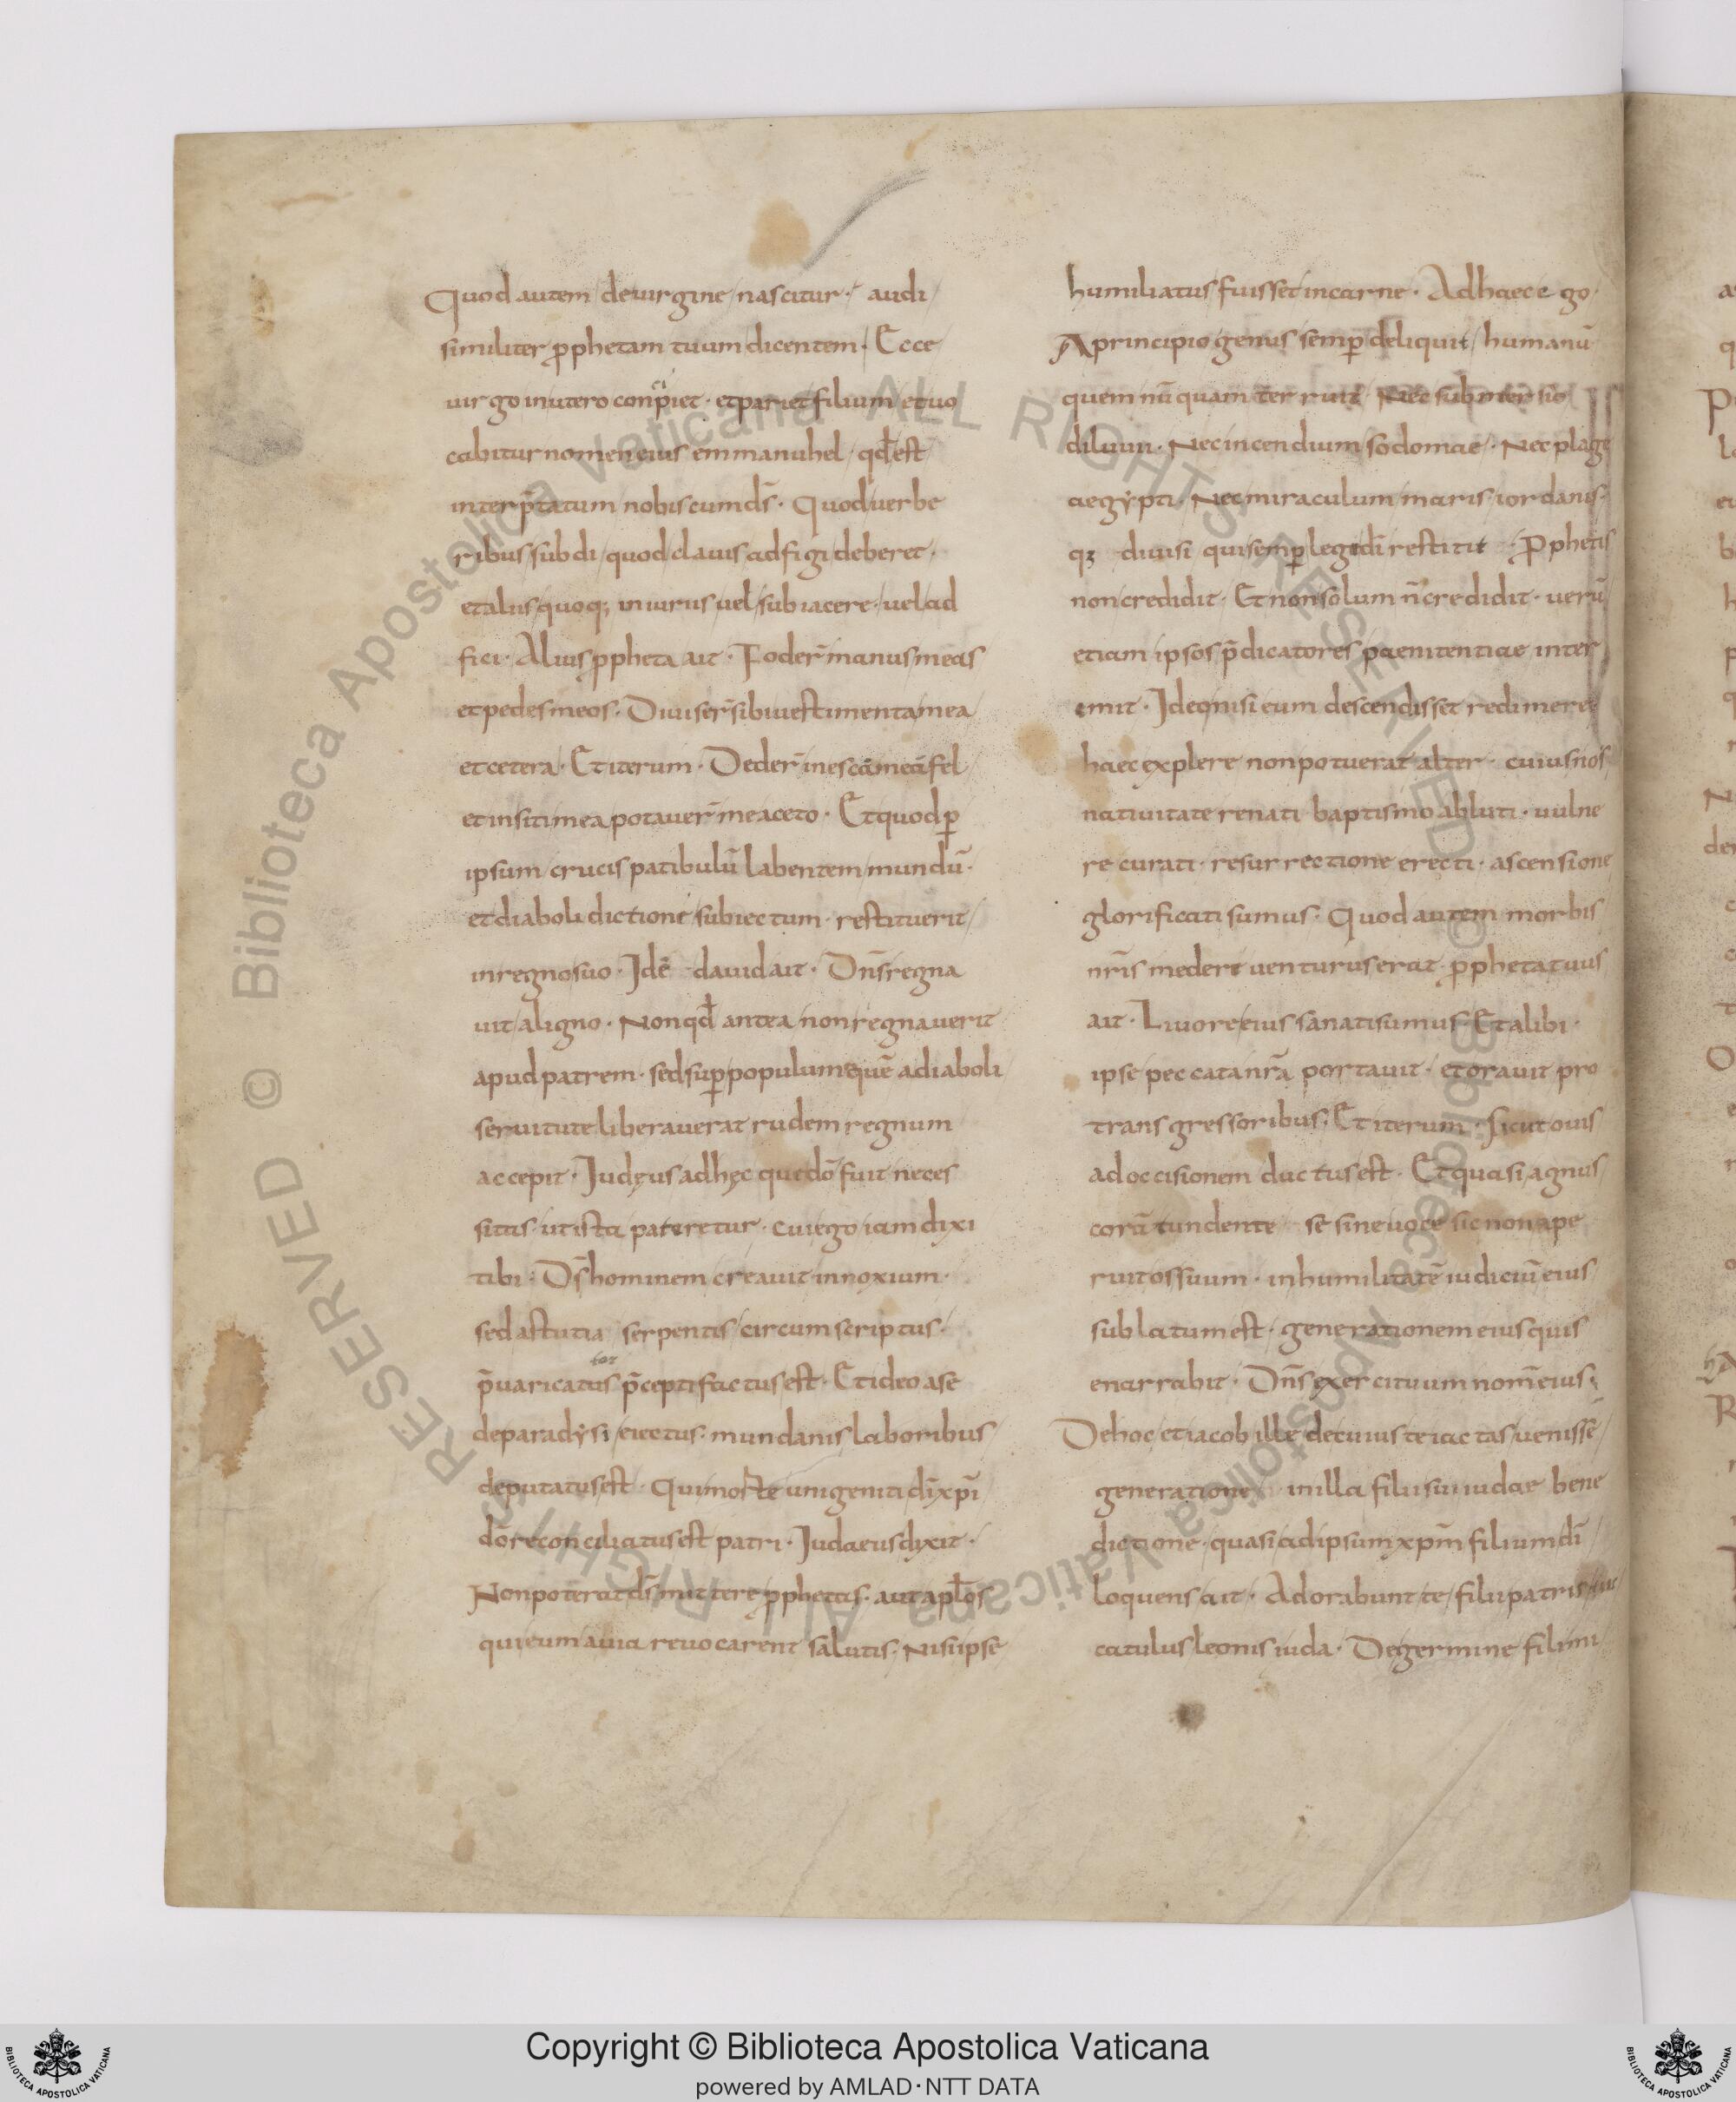 Quod autem de uirgine nascitur · audi
similiter p̄phetam tuum dicentem · Ecce
uirgo in utero concipiet · et pariet filium et uo
cabitur nomen eius emmanuhel · qd̄ est
interp̄tatum nobiscum ds̄ · Quod uerbe
ribus subdi quod clauis adfigi deberet ·
et aliis quoq; iniuriis uel subiacere · uel ad
fici · Alius ꝓpheta ait · Foder̄ manus meas
et pedes meos · Diuiser̄ sibi uestimenta mea
et cetera · Et iterum · Deder̄ in escā meā fel
et in siti mea potauer̄ me aceto · Et quod ꝑ
ipsum crucis patibulū labentem mundū ·
et diaboli dictione subiectum · restituerit
in regno suo · Idē dauid ait · Dn̄s regna
uit a ligno · Non qd̄ antea non regnauerit
apud patrem · sed suꝑ populum quē a diaboli
seruitute liberauerat rudem regnum
accepit · Judęus ad hęc que dō fuit neces
sitas · ut ista pateretur · cui ego iam dixi
tibi · Ds̄ hominem creauit innoxium ·
sed astutia serpentis circumscriptus ·
p̄uaricatus tor p̄cepti factus est · Et ideo a se
de paradysi eiectus · mundanis laboribus
deputatus est · Qui morte unigeniti dī xp̄i
dō reconciliatus est patri · Judaeus dixit ·
Non poterat ds̄ mittere ꝓphetas · aut apl̄os
qui eum a uia reuocarent salutis · Nisi ipse
humiliatus fuisset in carne · Ad haec ego ·
A principio genus semꝑ deliquit humanū
quem nū quam terruit · Nec submersio
diluuii · Nec incendium sodomae · Nec plage
aegypti · Nec miraculum maris iordanis
q; diuisi qui semꝑ legi dī restitit · Prophetis
non credidit · Et non solum n̄ credidit · uerū
etiam ipsos p̄dicatores paenitentiae inter
imit · Ideo nisi eum descendisset redimere
haec explere non potuerat alter · cuius nos
natiuitate renati baptismo abluti · uulne
re curati · resurrectione erecti · ascensione
glorificati sumus · Quod autem morbis
nr̄is mederi uenturus erat · ꝓpheta tuus
ait · Liuore eius sanati sumus · Et alibi ·
ipse peccata nr̄ā portauit · et orauit pro
transgressoribus · Et iterum · Sicut ouis
ad occisionem ductus est · Et quasi agnus
corā tundente se sine uoce sic non ape
ruit os suum · in humilitatē iudiciū eius
sublatum est · generationem eius quis
enarrabit · Dn̄s exercituum nom̄ eius ·
De hoc et iacob ille de cuius te iactas uenisse
generatione in illa filii sui iudae bene
dictione · quasi ad ipsum xp̄m filium dī
loquens ait · Adorabunt te filii patris tui
catulus leonis iuda · De germine fili mi
Copyright © Biblioteca Apostolica Vaticana
powered by AMLAD·NTT DATA